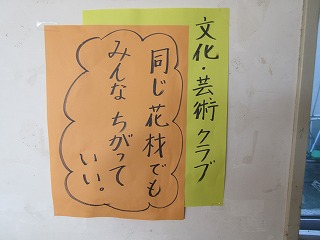 文化・芸術クラブ
同じ花材でも
みんなちがって
いい。